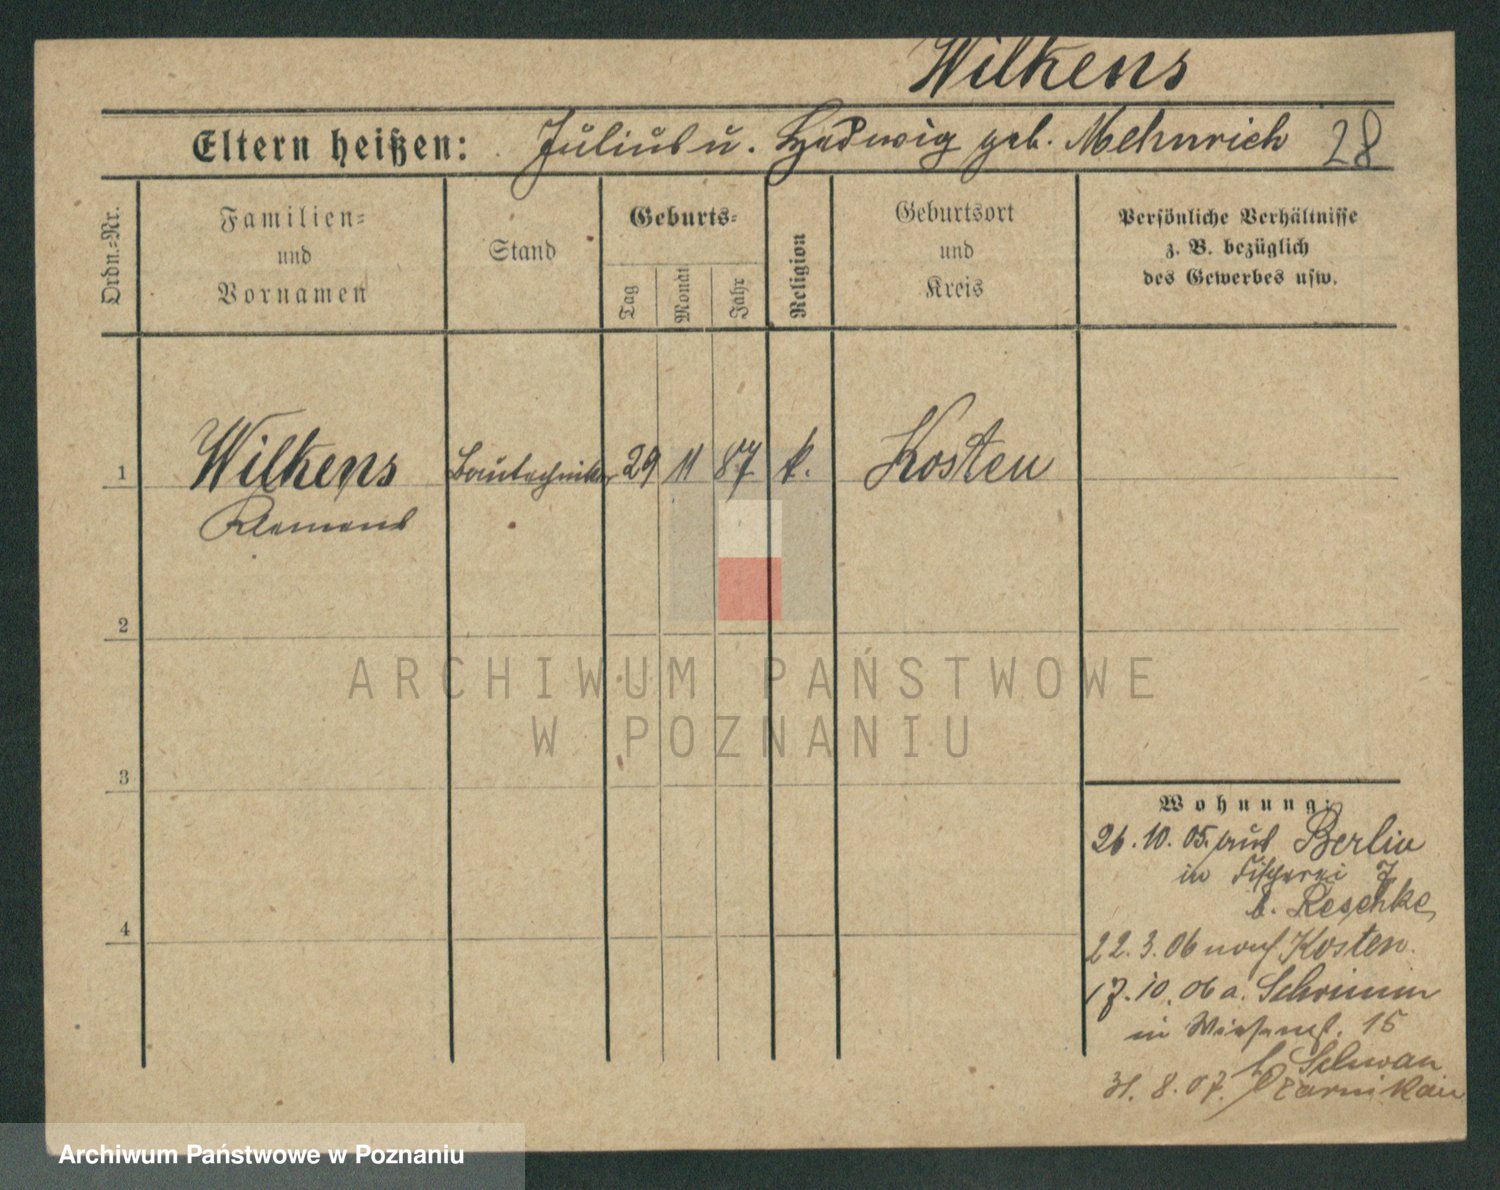 Wilkens
Eltern heißen: Julius u. Hedwig geb. Mehnrich 28
Ordn.-Nr.
Familien-
und
Vornamen
Stand
Geburts-
Tag
Monat
Jahr
Religion
Geburtsort
und
Kreis
Persönliche Verhältnisse
z. B. bezüglich
des Gewerbes usw.
1 Wilkens Bautechniker 29 11 87 k. Kosten
Klemens
2
ARCHIWUM PAŃSTWOWE
W POZNANIU
3
Wohnung:
26. 10. 05. aus Berlin
in Fischerei 7
b. Reschke
4
22. 3. 06 nach Kosten.
17. 10. 06 a. Schrimm
in Wiesenstr. 15
b. Schwan
31. 8. 07. Czarnikau
Archiwum Państwowe w Poznaniu